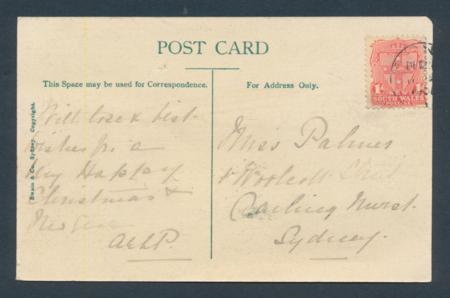 POST CARD
This Space may be used for Correspondence.
For Address Only.
Swain & Co., Sydney. Copyright.
1D
SOUTH WALES
With love & best
wishes for a
Very Happy
Christmas &
New Year
Miss Palmer
Woolcott Street
Darling Hurst
Sydney.